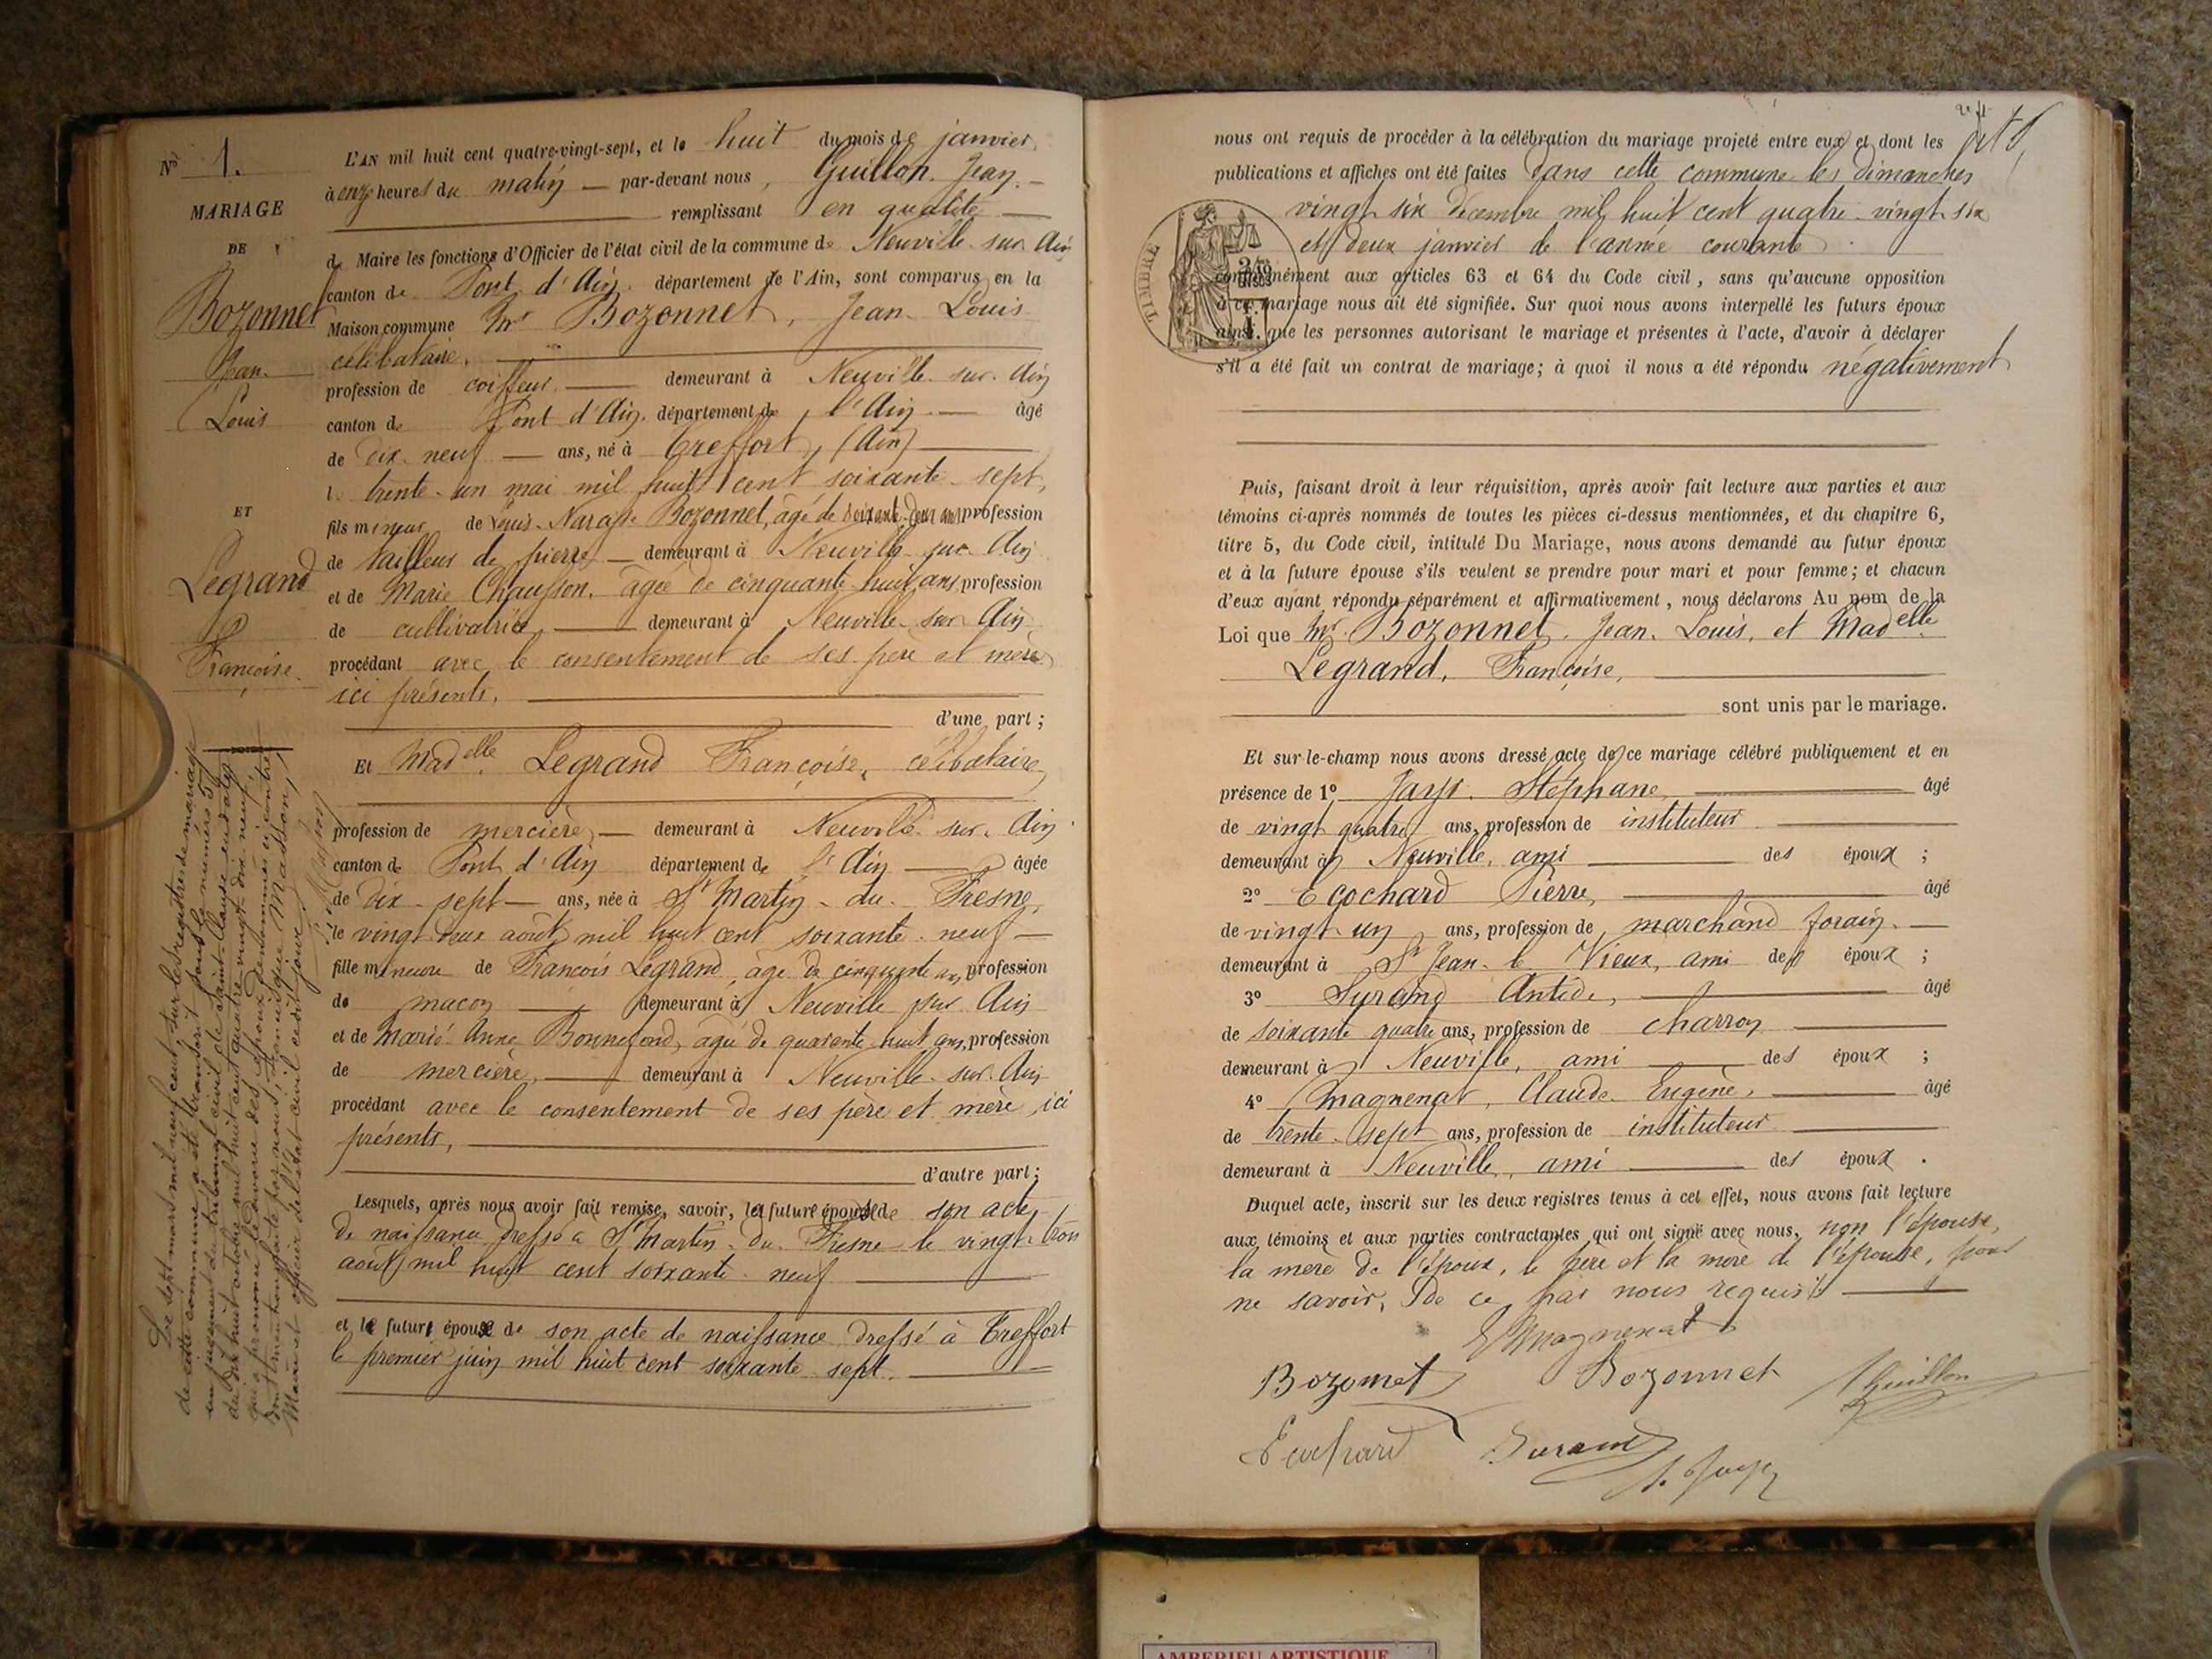 No 1.
MARIAGE
DE
Bozonnet
Jean
Louis
ET
Legrand
Françoise
Le sept mars mil neuf cent, sur les registres de mariage
de cette commune a été transcrit sous le numéro 5
un jugement du tribunal civil de Saint-Claude en date
du dix huit octobre mil huit cent quatre vingt dix neuf
qui a prononcé le divorce des époux dénommés ci-contre
Dont mention faite par nous, Masson
Maire et officier de l'état civil ce dit jour
L'AN mil huit cent quatre-vingt-sept, et le huit du mois de janvier
à onze heures du matin — par-devant nous, Guillon, Jean. —
remplissant en qualité —
de Maire les fonctions d'Officier de l'état civil de la commune de Neuville-sur-Ain
canton de Pont d'Ain, département de l'Ain, sont comparus en la
Maison commune Mr Bozonnet, Jean-Louis
célibataire.
profession de coiffeur — demeurant à Neuville-sur-Ain
canton de Pont d'Ain, département de l'Ain — âgé
de dix-neuf — ans, né à Treffort, (Ain)
le trente-un mai mil huit cent soixante-sept,
fils mineur de Louis-Narcisse Bozonnet, âgé de soixante-deux ans profession
de tailleur de pierre — demeurant à Neuville sur Ain
et de Marie Chausson, âgée de cinquante-huit ans, profession
de cultivatrice — demeurant à Neuville-sur-Ain
procédant avec le consentement de ses père et mère
ici présents,
d'une part ;
Et Madelle Legrand Françoise, célibataire,
profession de mercière, — demeurant à Neuville-sur-Ain
canton de Pont d'Ain département de l'Ain — âgée
de dix-sept — ans, née à St Martin-du-Fresne,
le vingt-deux août mil huit cent soixante-neuf —
fille mineure de François Legrand, âgé de cinquante ans, profession
de maçon — demeurant à Neuville sur Ain
et de Marie Anne Bonnefond, âgée de quarante-huit ans, profession
de mercière, — demeurant à Neuville-sur-Ain
procédant avec le consentement de ses père et mère, ici
présents,
d'autre part ;
Lesquels, après nous avoir fait remise, savoir, la future épouse de son acte
de naissance dressé à St Martin-du-Fresne le vingt-trois
août mil huit cent soixante-neuf
et le futur époux de son acte de naissance dressé à Treffort
le premier juin mil huit cent soixante sept.
nous ont requis de procéder à la célébration du mariage projeté entre eux et dont les
publications et affiches ont été faites dans cette commune les dimanches
vingt six décembre mil huit cent quatre-vingt-six
et deux janvier de l'année courante
TIMBRE
conformément aux articles 63 et 64 du Code civil, sans qu'aucune opposition
à ce mariage nous ait été signifiée. Sur quoi nous avons interpellé les futurs époux
ainsi que les personnes autorisant le mariage et présentes à l'acte, d'avoir à déclarer
s'il a été fait un contrat de mariage; à quoi il nous a été répondu négativement
Puis, faisant droit à leur réquisition, après avoir fait lecture aux parties et aux
témoins ci-après nommés de toutes les pièces ci-dessus mentionnées, et du chapitre 6,
titre 5, du Code civil, intitulé Du Mariage, nous avons demandé au futur époux
et à la future épouse s'ils veulent se prendre pour mari et pour femme; et chacun
d'eux ayant répondu séparément et affirmativement, nous déclarons Au nom de la
Loi que Mr. Bozonnet, Jean-Louis, et Madelle
Legrand, Françoise,
sont unis par le mariage.
Et sur-le-champ nous avons dressé acte de ce mariage célébré publiquement et en
présence de 1o Jays Stéphane, — âgé
de vingt quatre ans, profession de instituteur
demeurant à Neuville, ami — des époux ;
2o Ecochard Pierre, — âgé
de vingt-un ans, profession de marchand forain. —
demeurant à St Jean-le Vieux, ami des époux ;
3o Surand Antide, — âgé
de soixante quatre ans, profession de charron
demeurant à Neuville, ami — des époux ;
4o Magnenat, Claude-Eugène, — âgé
de trente-sept ans, profession de instituteur
demeurant à Neuville, ami — des époux .
Duquel acte, inscrit sur les deux registres tenus à cet effet, nous avons fait lecture
aux témoins et aux parties contractantes qui ont signé avec nous, non l'épouse,
la mère de l'époux, le père et la mère de l'épouse, pour
ne savoir, de ce par nous requis
Magnenat
Bozonnet Bozonnet Guillon
Ecochard Surand
S. Jays
AMBERIEU ARTISTIQUE